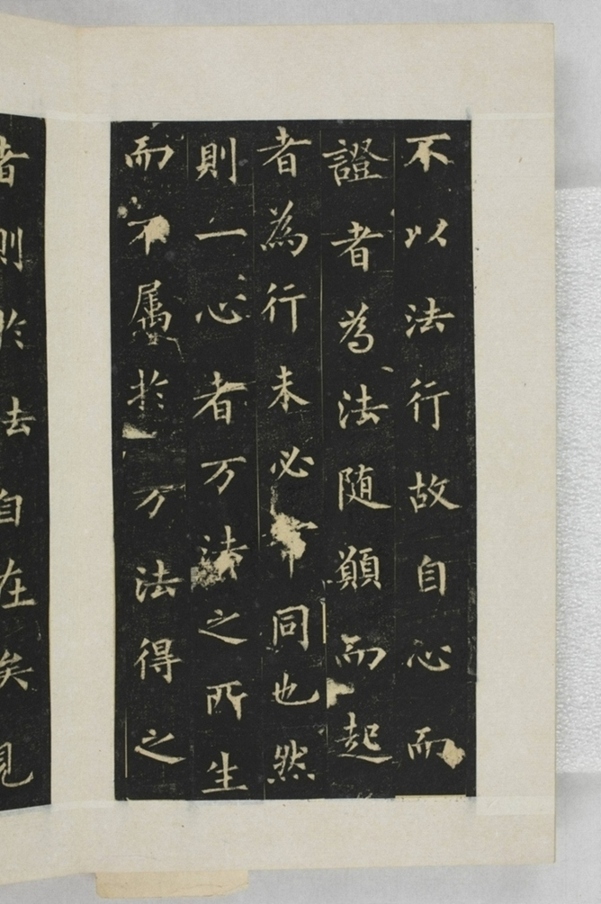 不以法行故自心而
證者為法随願而起
者為行未必常同也然
則一心者万法之所生
而不属於万法得之
者則於法自在矣見